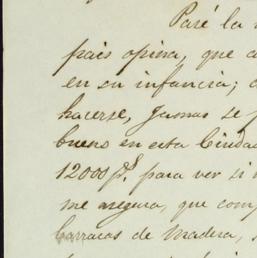 Paré la
pais opina, que
en su infancia;
hacerse, Jamas se
bueno en esta Ciudad
12000 p.s para ver si
me asegura, que com
barracas de Madera,